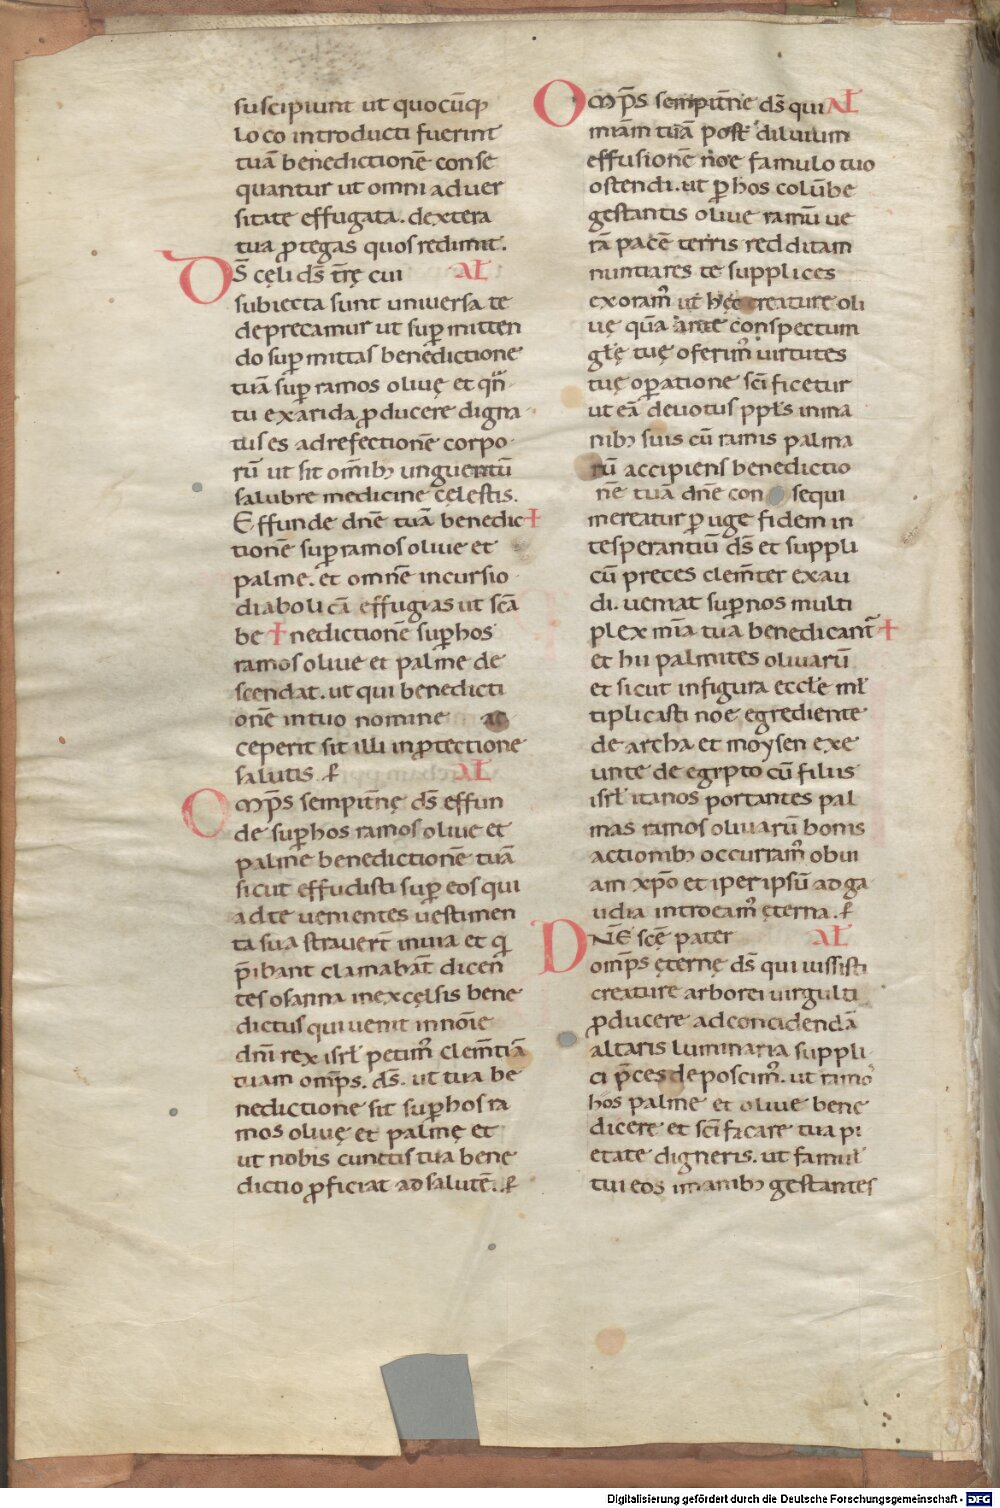 suscipiunt ut quocūq;
loco introducti fuerint
tuā benedictionē conse
quantur ut omni aduer
sitate effugata. dextera
tua ꝓtegas quos redimit.
D̄S cęli ds̄ trr̄ę cui AƚƗ
subiecta sunt uniuersa te
deprecamur ut suꝑ mitten
do suꝑ mittas benedictione
tuā suꝑ ramos oliuę et
tu ex arida ꝓducere digna
tus es ad refectionē corpo
rū ut sit om̄ib; unguentū
salubre medicine cęlestis.
Effunde dn̄e tuā benedic ✝
tionē suꝑ ramos oliue et
palme. et omnē incursio
diabolicā effugias ut scā
be ✝ nedictionē suꝑ hos
ramos oliue et palme de
scendat. ut qui benedicti
onē in tuo nomine ac
ceperit sit illi in ꝓtectione
salutis. ꝑ AƚƗ
Om̄ps sempitn̄ę ds̄ effun
de suꝑ hos ramos oliue et
palme benedictionē tuā
sicut effudisti suꝑ eos qui
ad te uenientes uestimen
ta sua strauer̄t in uia et q̄
p̄ibant clamabāt dicen
tes osanna in excęlsis bene
dictus qui uenit in noīe
dn̄i rex isrl̄ petim̄ clem̄tiā
tuam om̄ps. ds̄. ut tua be
nedictione sit suꝑ hos ra
mos oliuę et palmę et
ut nobis cunctis tua bene
dictio ꝓficiat ad salutē. ꝑ
Om̄ps sempitn̄e ds̄ qui AƚƗ
miām tuā post diluuium
effusionē noe famulo tuo
ostendi. ut ꝑ hos colūbe
gestantis oliue ramū ue
rā pacē terris redditam
nuntiares te supplices
exoram̄ ut hęc creature oli
uę quā ante conspectum
glę̄ tuę oferim̄ uirtutes
tuę oꝑatione scīficetur
ut eā deuotus ppl̄s in ma
nib; suis cū ramis palma
rū accipiens benedictio
nē tuā dn̄e con sequi
mereatur ꝑ uge fidem in
te sperantiū ds̄ et suppli
cū preces clem̄ter exau
di. ueniat suꝑ nos multi
plex mīa tua benedicant̄ ✝
et hii palmites oliuarū
et sicut in figura eccl̄e ml̄
tiplicasti noe egrediente
de archa et moysen exe
unte de egypto cū filiis
isrl̄itanos portantes pal
mas ramos oliuarū bonis
actionib; occurram̄ obui
am xp̄o et iper ipsū ad ga
udia introeam̄ ęterna. ꝑ
DN̄E scē pater AƚƗ
om̄ps ęternę ds̄ qui iussisti
creature arborei uirgulti
ꝓducere ad concidendā
altaris luminaria suppli
ci p̄ces deposcim̄. ut ramo
hos palme et oliue bene
dicere et scīfacare tua pi
etate digneris. ut famul̄
tui eos in manib; gestantes
Digitalisierung gefördert durch die Deutsche Forschungsgemeinschaft - DFG